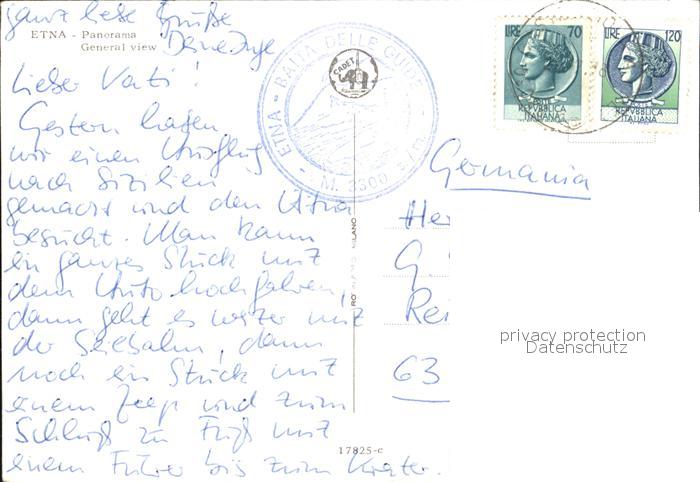 ganz liebe Grüße
Deine Inge
ETNA - Panorama
General view
Lieber Vati!
Gestern haben
wir einen Ausflug
nach Sizilien
gemacht und den Ätna
besucht. Man kann
ein ganzes Stück mit
dem Auto hochfahren,
dann geht es weiter mit
der Seilbahn, dann
noch ein Stück mit
einem Jeep und zum
Schluß zu Fuß mit
einem Führer bis zum Krater.
ETNA - BAITA DELLE GUIDE
M. 3300 s/m
CADET
MILANO
17825-c
LIRE 70
REPVBBLICA
ITALIANA
LIRE 120
REPVBBLICA
ITALIANA
Germania
Her
G.
Rei
63
privacy protection
Datenschutz